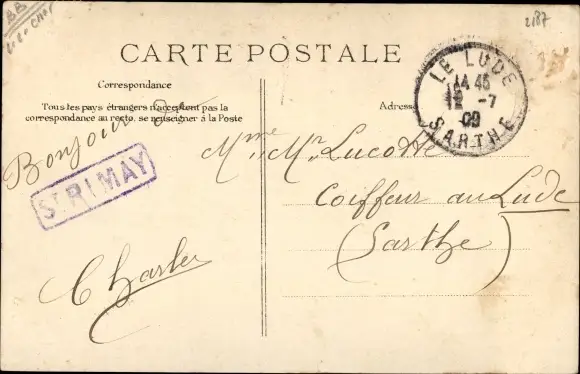 2187
CARTE POSTALE
Correspondance
Tous les pays étrangers n'acceptent pas la
correspondance au recto, se renseigner à la Poste
Bonjour
ST RIMAY
Charles
Adresse
LE LUDE
14 45
12 -7
09
SARTHE
Mme Mr Lucotte
Coiffeur au Lude
(Sarthe)